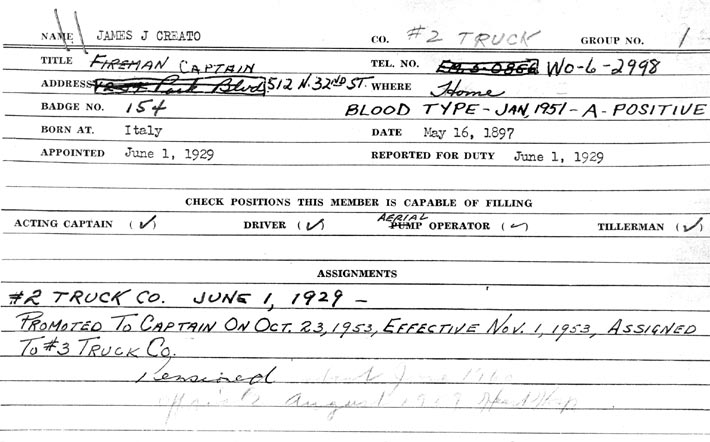 NAME JAMES J CREATO CO. #2 TRUCK GROUP NO. 1
TITLE FIREMAN CAPTAIN TEL. NO. WO-6-2998
ADDRESS Park Blvd. 512 N. 32ND ST. WHERE Home
BADGE NO. 154 BLOOD TYPE - JAN, 1951 - A - POSITIVE
BORN AT. Italy DATE May 16, 1897
APPOINTED June 1, 1929 REPORTED FOR DUTY June 1, 1929
CHECK POSITIONS THIS MEMBER IS CAPABLE OF FILLING
ACTING CAPTAIN (✓) DRIVER (✓) AERIAL PUMP OPERATOR (✓) TILLERMAN (✓)
ASSIGNMENTS
#2 TRUCK CO. JUNE 1, 1929 -
PROMOTED TO CAPTAIN ON OCT. 23, 1953, EFFECTIVE NOV. 1, 1953, ASSIGNED
TO #3 TRUCK CO.
Pensioned June
August